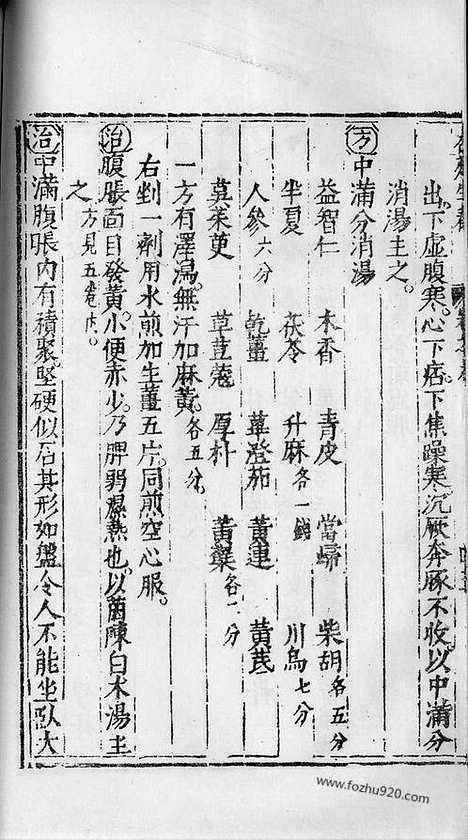 出下虛腹寒心下痞下焦躁寒沉厥奔豚不收以中滿分
消湯主之
方 中滿分消湯
益智仁 木香 青皮 當歸 柴胡各五分
半夏 茯苓 升麻各一錢 川烏七分
人參六分 乾薑 蓽澄茄 黃連 黃芪
莫茱萸 草荳蔻 厚朴 黃蘗各一分
一方有澤瀉無汗加麻黃各五分
右剉一劑用水煎加生薑五片同煎空心服
治 腹脹面目發黃小便赤少乃脾弱濕熱也以茵陳白木湯主
之方見五疸中
治 中滿腹脹內有積聚堅硬似石其形如盤令人不能坐臥大
www.fozhu920.com